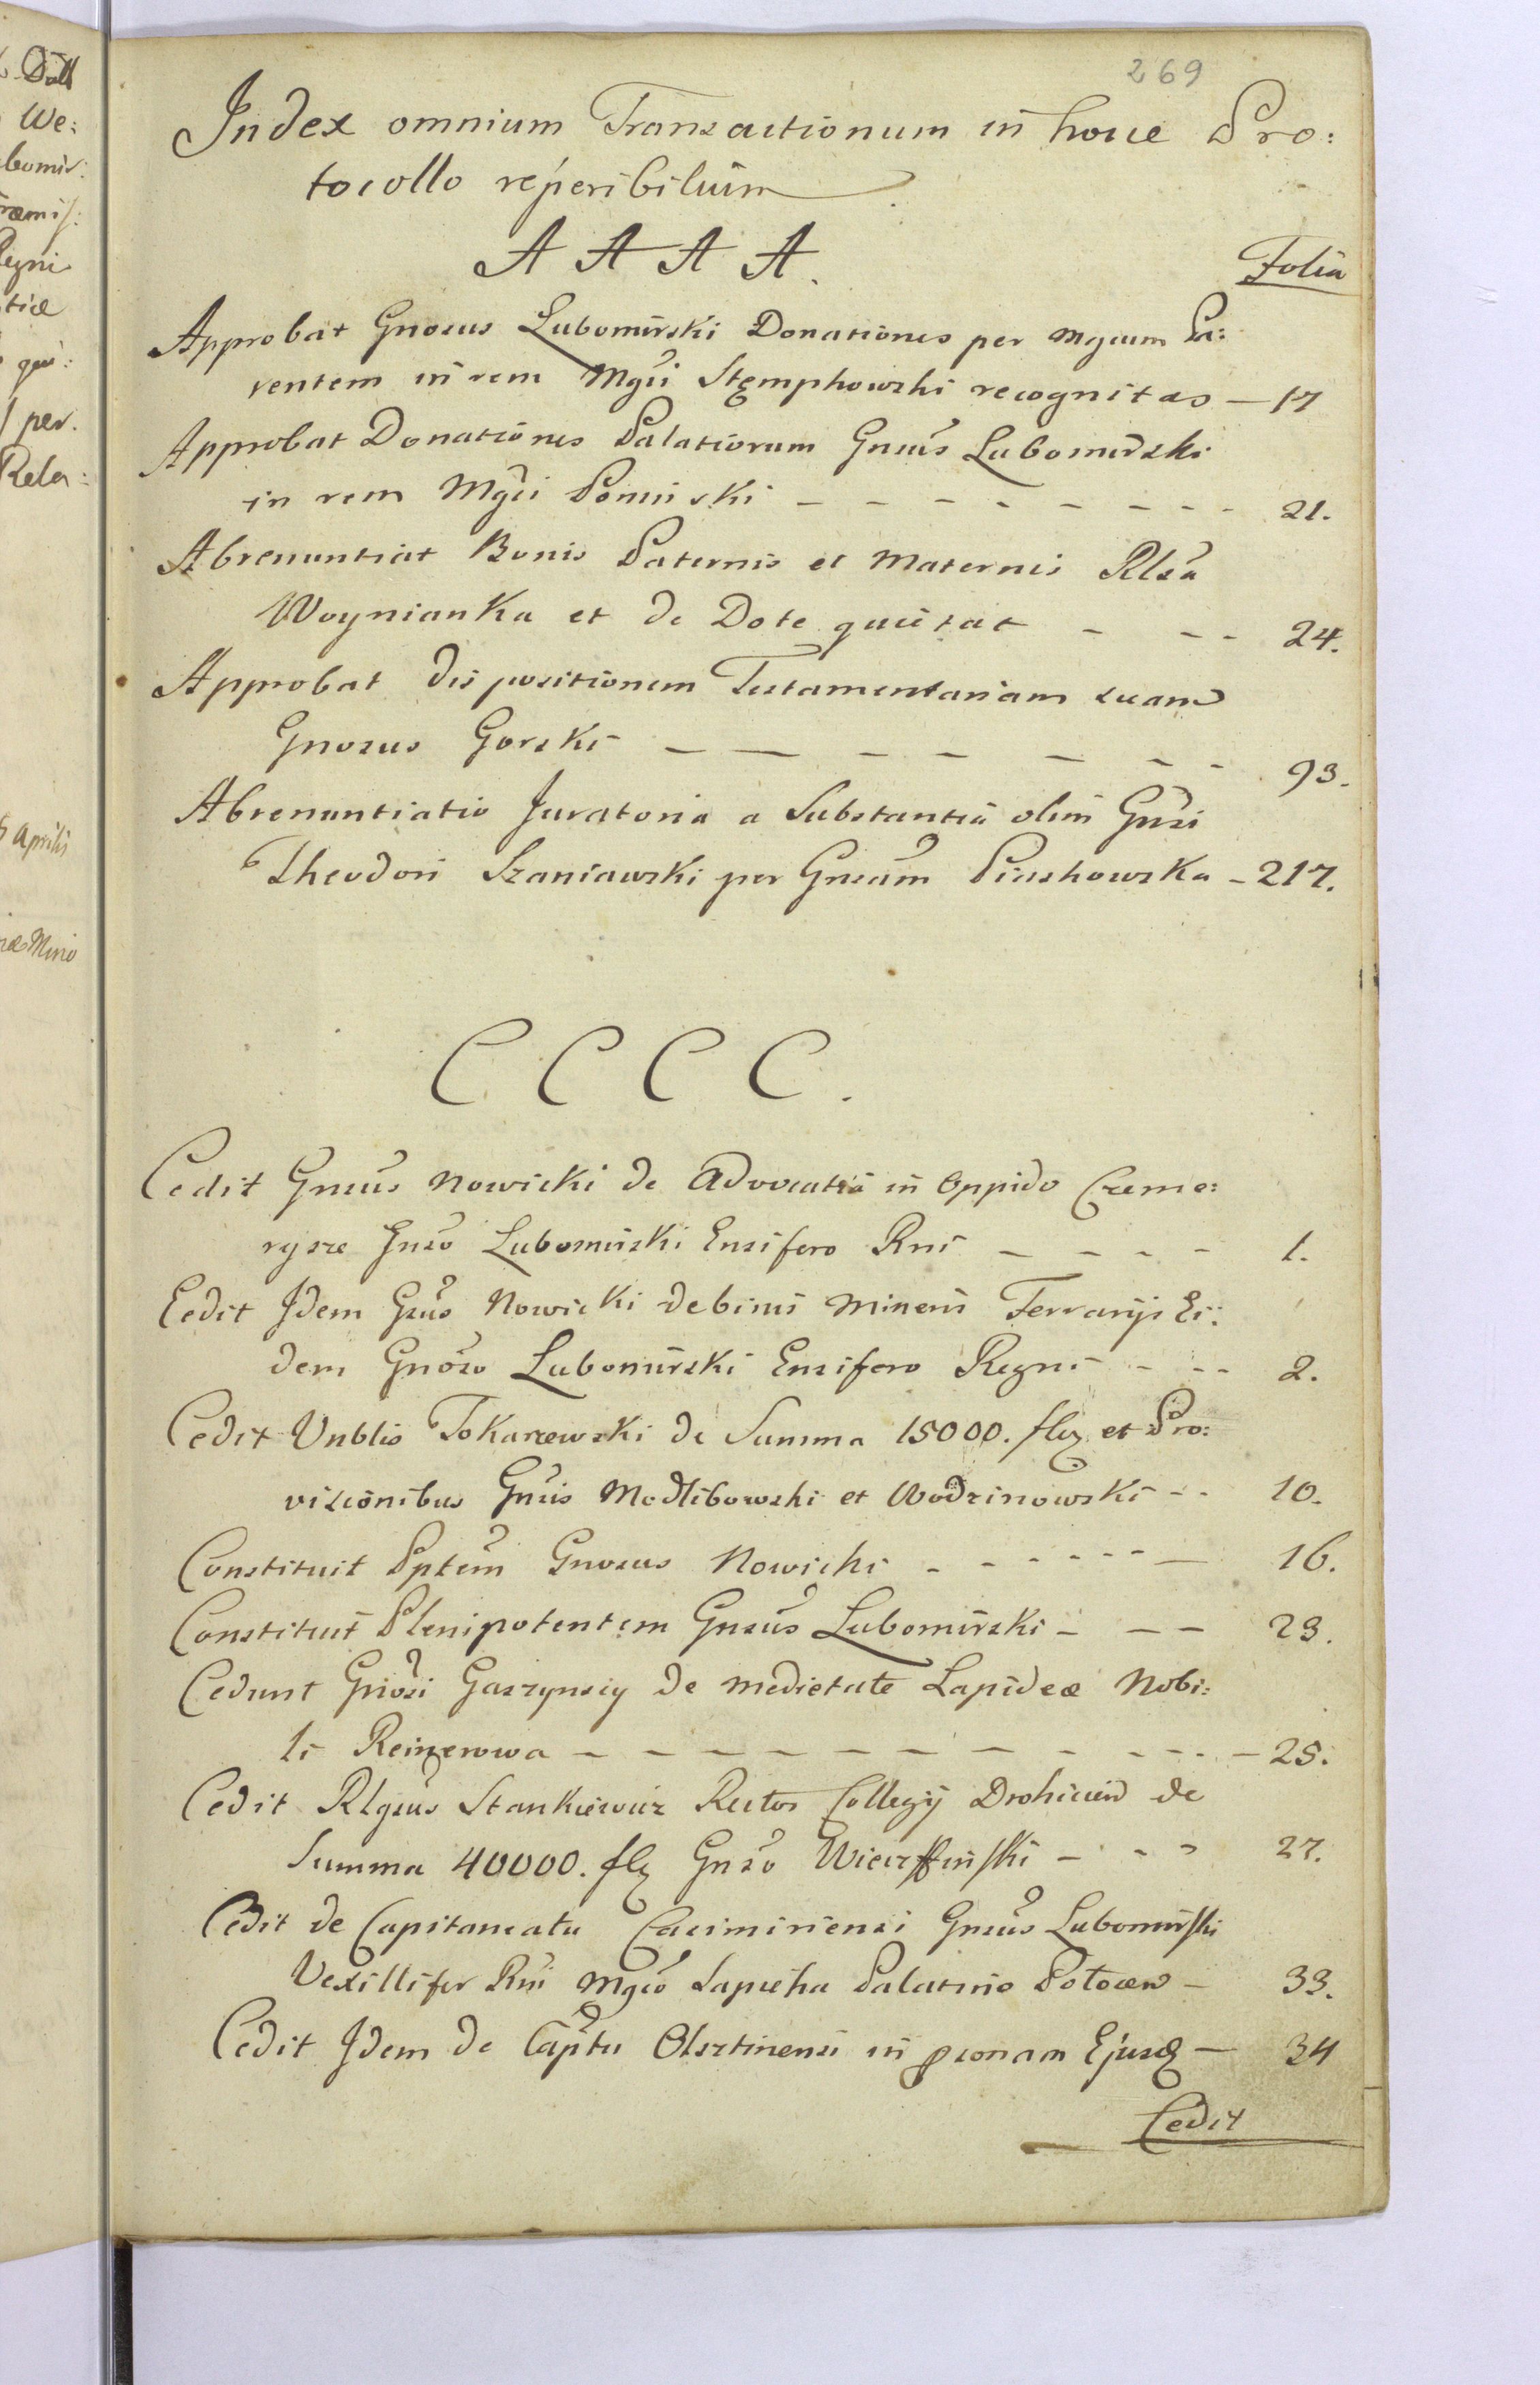 269
Index omnium Transactionum in hocce Pro:
tocollo reperibilium
A A A A.
Folia
Approbat Gnosus Lubomirski Donationes per Mgcum Pa:
rentem in rem Mgci Stęmpkowski recognitas — 17
Approbat Donationes Palatiorum Gnsus Lubomirski
in rem Mgci Poninski - - - - - - - - 21.
Abrenuntiat Bonis Paternis et Maternis Rlsa
Woynianka et de Dote quietat - - - 24.
Approbat dispositionem Testamentariam suam
Gnosus Gorski - - - - - - - 93.
Abrenuntiatio Juratoria a Substantia olim Gnsi
Theodori Szaniawski per Gnsam Piaskowska - 217.
C C C C.
Cedit Gnsus Nowicki de Advocatia in Oppido Czeme:
rysze Gnso Lubomirski Ensifero Rni - - - - 1.
Cedit Idem Gsus Nowicki de binis Mineris Ferrarijs Ei:
dem Gnoso Lubomirski Ensifero Regni - - - 2.
Cedit Vnblis Tokarzewski de Summa 15000. flg et Pro:
viscionibus Gnsis Modlibowski et Wodzinowski - - 10.
Constituit Pptem Gnosus Nowicki - - - - - - — 16.
Constituit Plenipotentem Gnsus Lubomirski - - - 23.
Cedunt Gnosi Gaszynscy de medietate Lapideæ Nobi:
li Reinerowa - - - - - - - - - - - - 25.
Cedit Rlgsus Stankiewicz Rector Collegij Drohicien de
Summa 40000. flg Gnso Wierzbinski - - - 27.
Cedit de Capitaneatu Casimiriensi Gnsus Lubomirski
Vexillifer Rni Mgco Sapieha Palatino Polocen — 33.
Cedit Idem de Captu Olsztinensi in psonam Ejusd — 34
Cedit